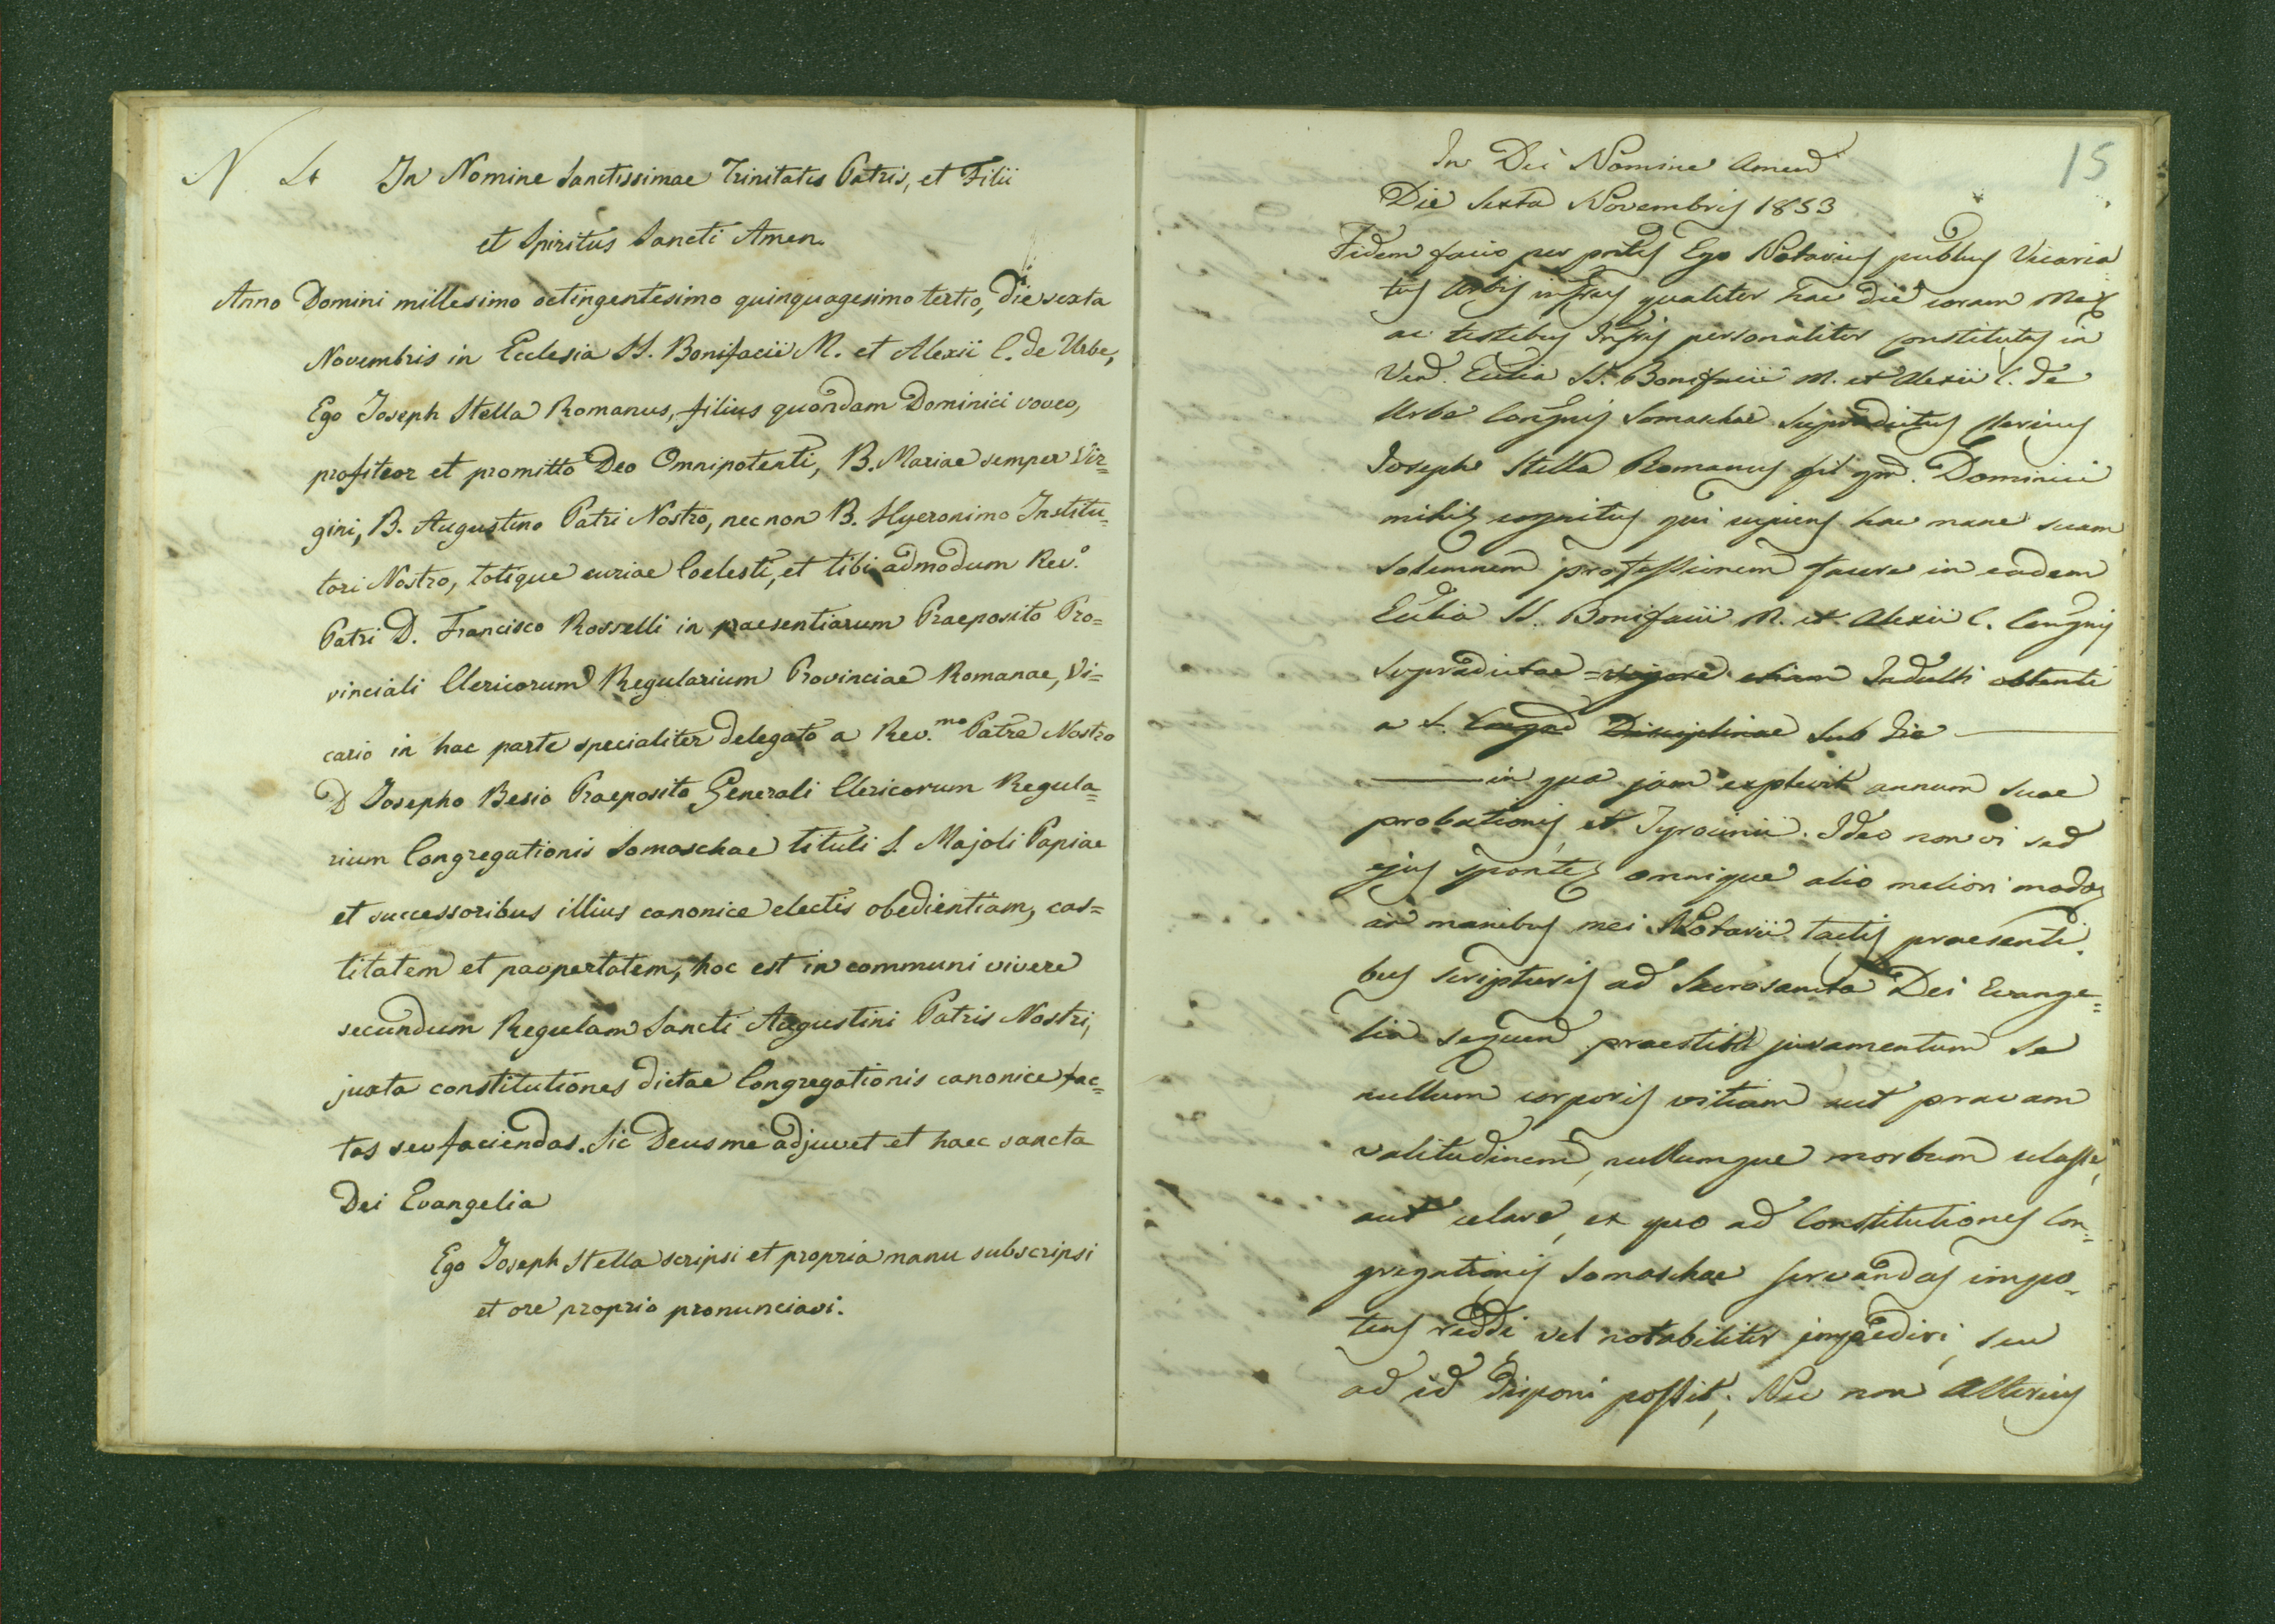 N 4 In Nomine Sanctissimae Trinitatis Patris, et Filii
et Spiritus Sancti Amen.
Anno Domini millesimo octingentesimo quinquagesimo tertio, die sexta
Novembris in Ecclesia SS. Bonifacii M. et Alexii C. de Urbe,
Ego Joseph Stella Romanus, filius quondam Dominici voveo,
profiteor et promitto Deo Omnipotenti, B. Mariae semper Vir=
gini, B. Augustino Patri Nostro, necnon B. Hyeronimo Institu=
tori Nostro, totique curiae Coelesti, et tibi admodum Rev.º
Patri D. Francisco Rosselli in praesentiarum Praeposito Pro=
vinciali Clericorum Regularium Provinciae Romanae, Vi=
cario in hac parte specialiter delegato a Rev.mo Patre Nostro
D Josepho Besio Praeposito Generali Clericorum Regula=
rium Congregationis Somaschae tituli S. Majoli Papiae
et successoribus illius canonice electis obedientiam, cas=
titatem et paupertatem, hoc est in communi vivere
secundum Regulam Sancti Augustini Patris Nostri,
juxta constitutiones dictae Congregationis canonice fac=
tas seu faciendas. Sic Deus me adjuvet et haec sancta
Dei Evangelia
Ego Joseph Stella scripsi et propria manu subscripsi
et ore proprio pronunciavi.
15
In Dei Nomine Amen
Die Sexta Novembris 1853
Fidem facio per pntes Ego Notarius publus Vicaria
tus Urbis infrus qualiter hac die coram me
ac testibus Infris personaliter constitutus in
Ven. Ecclia SS. Bonifacii M. et Alexii C. de
Urbe Congnis Somaschae supradictus Clericus
Joseph Stella Romanus fil qm. Dominici
mihi cognitus qui cupiens hac mane suam
solemnem professionem facere in eadem
Ecclia SS. Bonifacii M. et Alexii C. Congnis
supradictae = vigore etiam Indulti obtenti
a S. Congne Disciplinae sub die
in qua jam explevit annum suae
probationis et Tyrocinii. Ideo non vi sed
ejus sponte, omnique alio meliori modo
in manibus mei Notarii tactis praesenti
bus scripturis ad Sacrosancta Dei Evange=
lia sequens praestitit juramentum se
nullum corporis vitium aut pravam
valitudinem, nullumque morbum celasse,
aut celare, ex quo ad Constitutiones Con=
gregationis Somaschae servandas impo=
tens reddi vel notabiliter impediri, seu
ad id disponi possit; Nec non Alterius